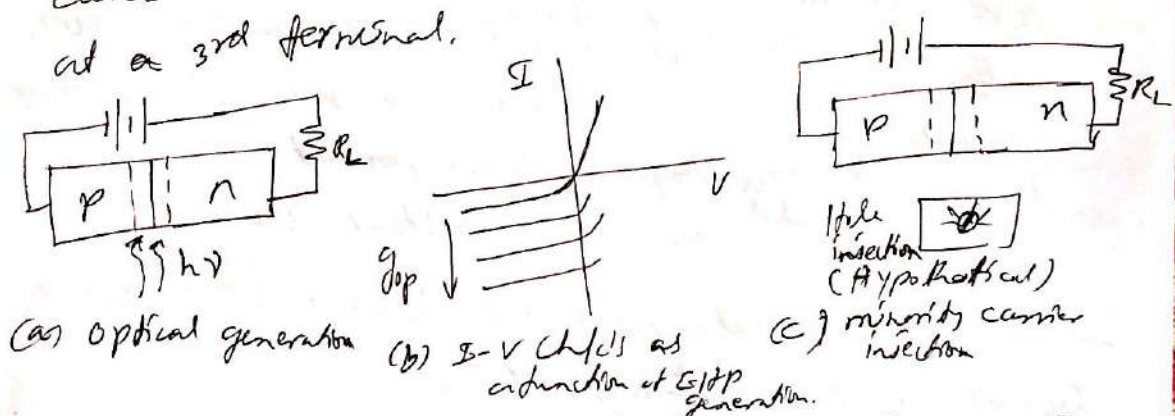 at a 3rd terminal.
P n RL
hν
gop
(a) optical generation
I
V
(b) I-V Ch/c's as
a function of EHP
generation.
P n RL
Hole
injection
(Hypothetical)
(c) minority carrier
injection